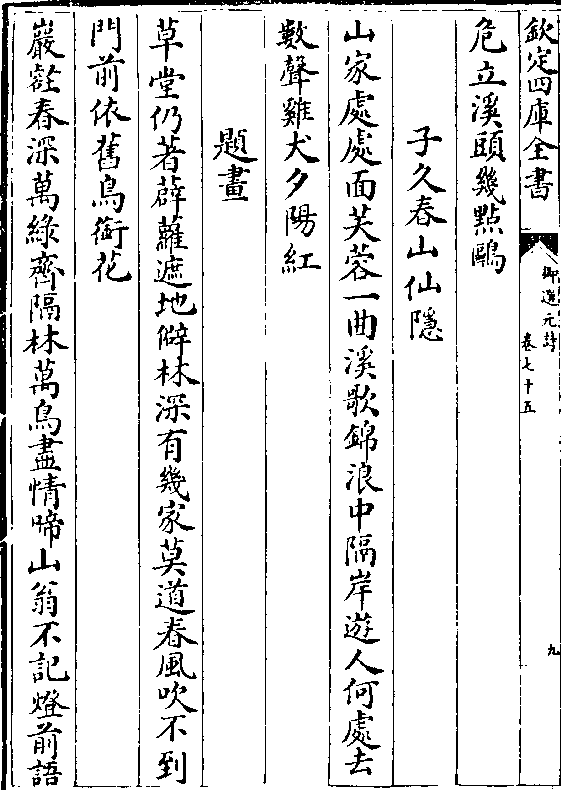 欽定四庫全書
御選元詩
卷七十五
九
危立溪頭幾點鷗
子久春山仙隱
山家處處面芙蓉一曲溪歌錦浪中隔岸遊人何處去
數聲雞犬夕陽紅
題畫
草堂仍著薜蘿遮地僻林深有幾家莫道春風吹不到
門前依舊鳥銜花
巖壑春深萬綠齊隔林萬鳥盡情啼山翁不記燈前語